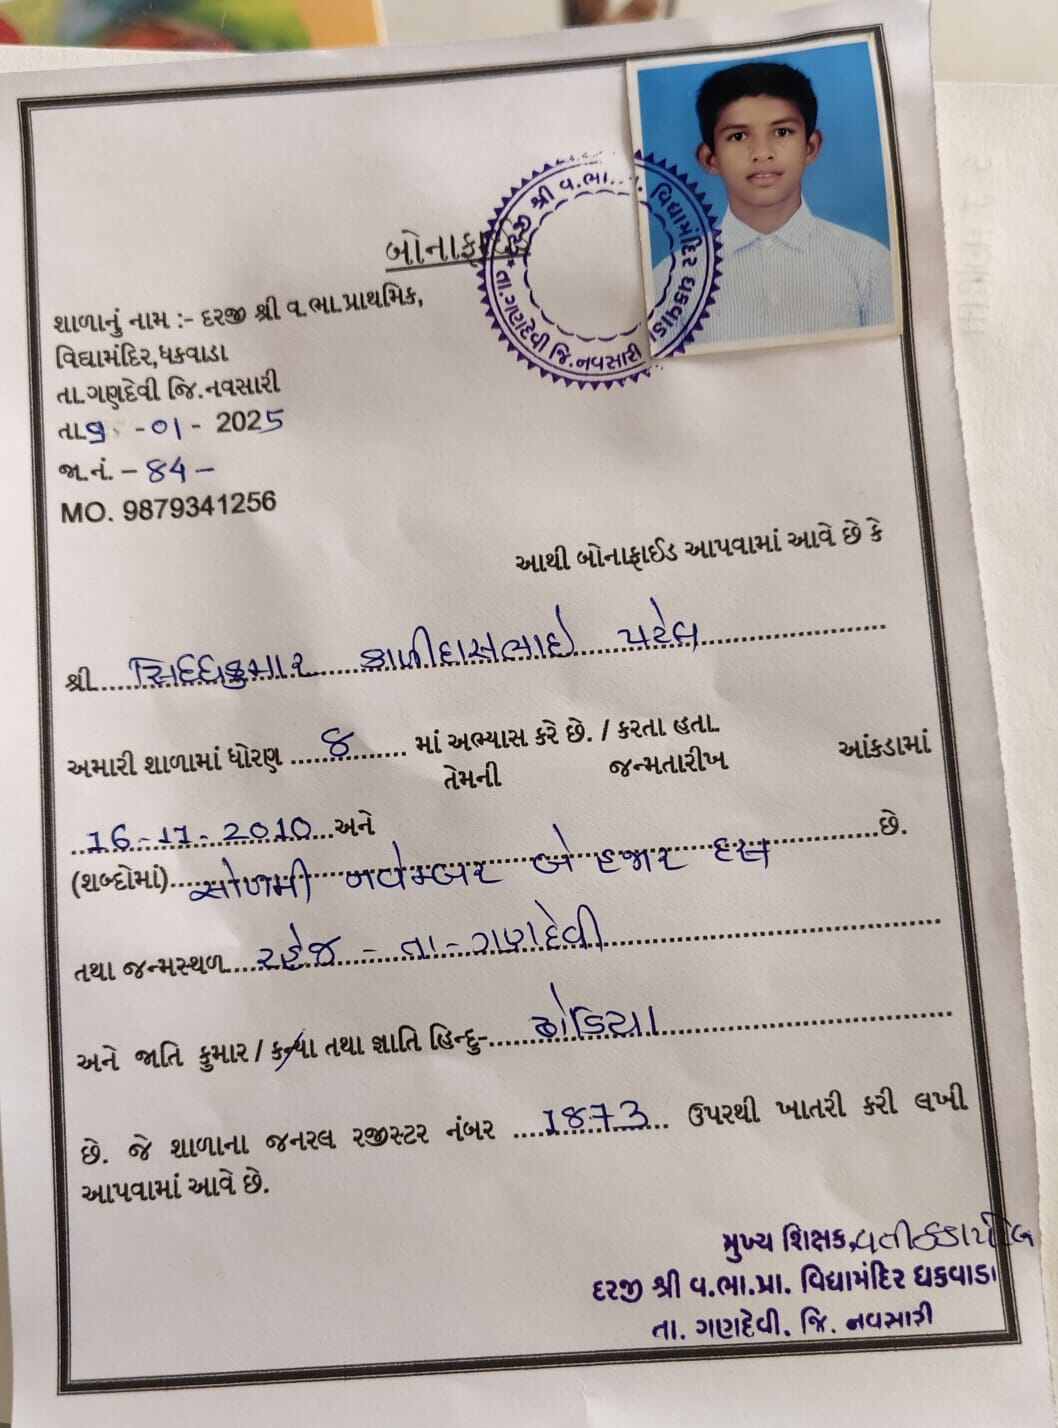 બોનાફાઈડ
શ્રી વ.ભા. વિદ્યામંદિર ધકવાડા
તા. ગણદેવી જિ. નવસારી
શાળાનું નામ :- દરજી શ્રી વ.ભા.પ્રાથમિક,
વિદ્યામંદિર,ધકવાડા
તા.ગણદેવી જિ.નવસારી
તા. -01- 2025
જા.નં. – 84 –
MO. 9879341256
આથી બોનાફાઈડ આપવામાં આવે છે કે
શ્રી સિદ્ધકુમાર કાળીદાસભાઈ પટેલ
અમારી શાળામાં ધોરણ 8 માં અભ્યાસ કરે છે. / કરતા હતા.
તેમની જન્મતારીખ આંકડામાં
16-11-2010 અને
(શબ્દોમાં) સોળમી નવેમ્બર બે હજાર દસ છે.
તથા જન્મસ્થળ રહેજ - તા - ગણદેવી
અને જાતિ કુમાર / કન્યા તથા જ્ઞાતિ હિન્દુ- ધોડિયા
છે. જે શાળાના જનરલ રજીસ્ટર નંબર 1873 ઉપરથી ખાતરી કરી લખી
આપવામાં આવે છે.
મુખ્ય શિક્ષક,
દરજી શ્રી વ.ભા.પ્રા. વિદ્યામંદિર ધકવાડા
તા. ગણદેવી. જિ. નવસારી